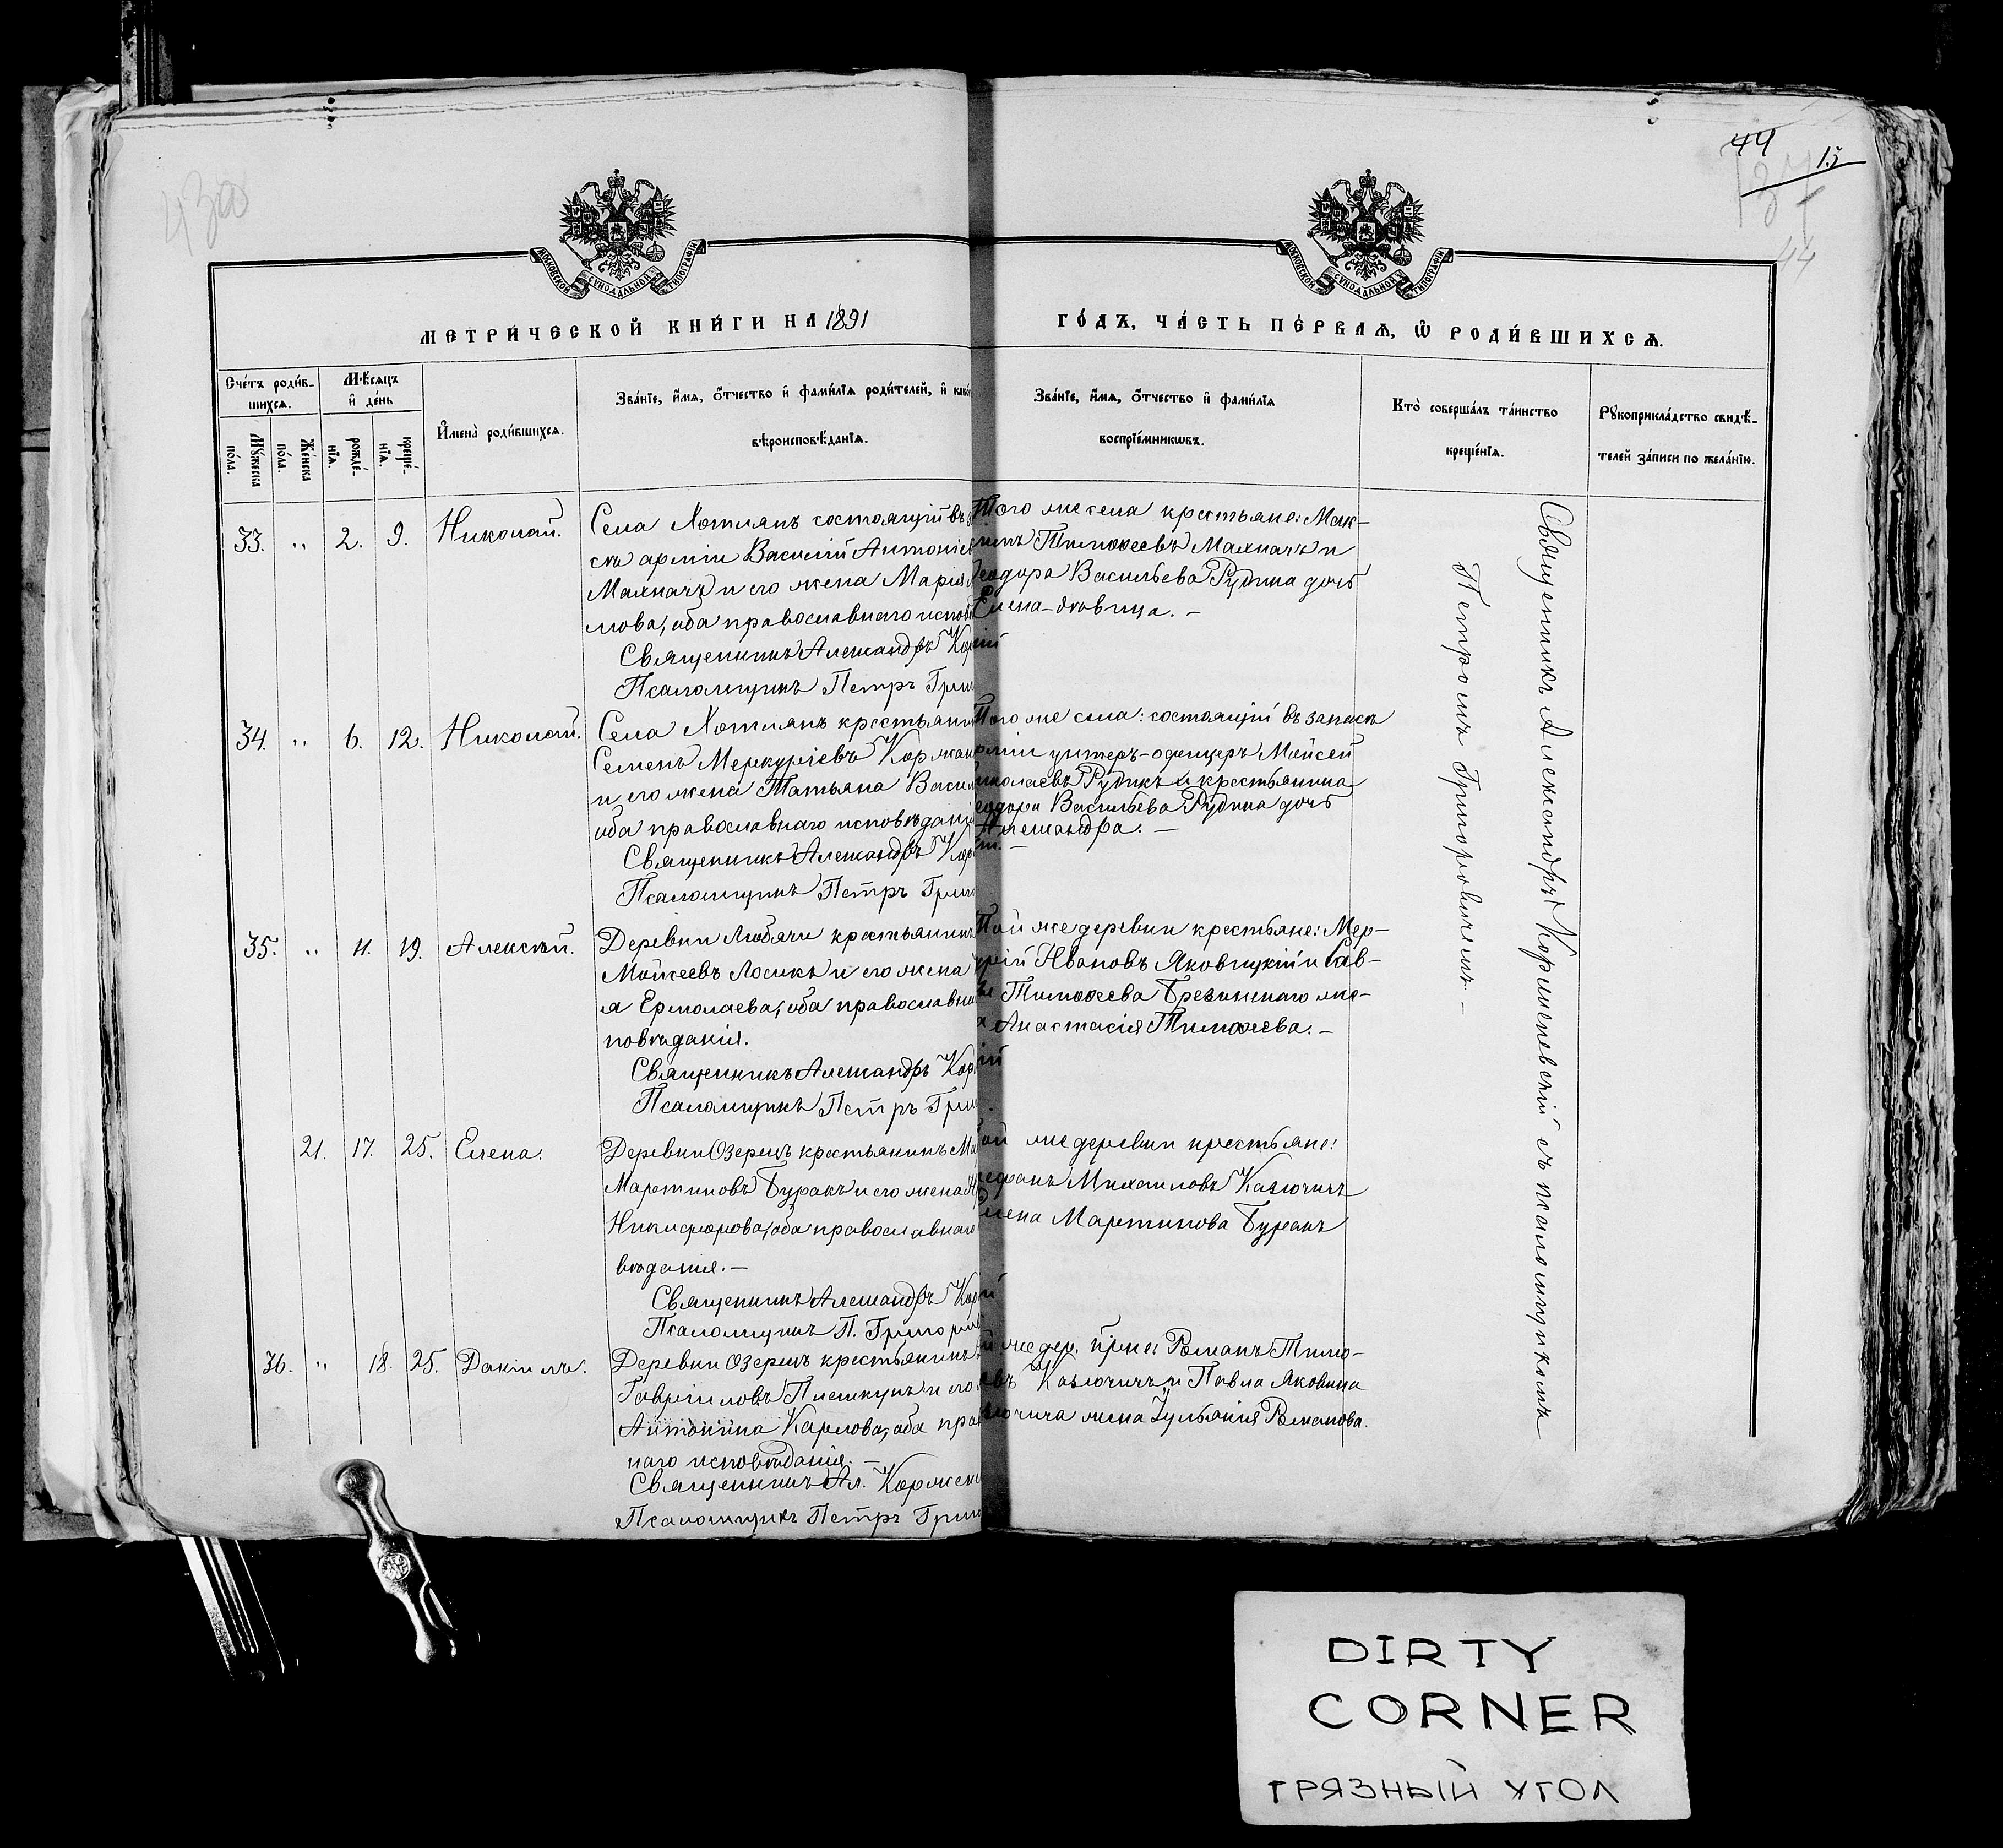 430
44
15
44
МОСКОВСКОЙ СѴНОДАЛЬНОЙ ТИПОГРАФІИ
МОСКОВСКОЙ СѴНОДАЛЬНОЙ ТИПОГРАФІИ
МЕТРИ́ЧЕСКОЙ КНИ́ГИ НА 1891
ГО́ДЪ, ЧА́СТЬ ПЕ́РВАѦ, Ѡ҆ РОДИ́ВШИХСѦ.
Сче́тъ роди́в-
шихсѧ.
Мѣ́сѧцъ
и҆ де́нь
Мꙋ́жеска
по́ла.
Же́нска
по́ла.
рожде́-
нїѧ.
креще́-
нїѧ.
И҆мена̀ роди́вшихсѧ.
Зва́нїе, и҆́мѧ, ѻ҆́тчество и҆ фами́лїѧ роди́телей, и҆ како́
вѣроисповѣ́данїѧ.
Зва́нїе, и҆́мѧ, ѻ҆́тчество и҆ фами́лїѧ
воспрїе́мникѡвъ.
Кто̀ соверша́лъ та́инство
креще́нїѧ.
Рꙋкоприкла́дство свидѣ́-
телей за́писи по жела́нїю.
33. " 2. 9. Николай.
Села Хотлянъ состоящій въ
са арміи Василій Антоніев
Махначъ и его жена Марія
мова, оба православнаго испов
Священникъ Александръ Кор
Псаломщикъ Петръ Григ
Того же села крестьяне: Мак-
симъ Тимоѳеевъ Махначъ и
Ѳеодора Васильева Рудика дочь
Елена-дѣвица. –
34. " 6. 12. Николай.
Села Хотлянъ крестьянин
Семенъ Меркуріевъ Коржан
и его жена Татьяна Васил
оба православнаго исповѣдані
Священникъ Александръ Кор
Псаломщикъ Петръ Григ
Того же села: состоящій въ запасѣ
арміи унтеръ-офицеръ Мойсей
Николаевъ Рудикъ и крестьянина
Ѳеодора Васильева Рудика дочь
Александра. –
35. " 11. 19. Алексѣй.
Деревни Любячи крестьянинъ
Мойсеевъ Лосикъ и его жена
я Ермолаева, оба православна
повѣданія.
Священникъ Александръ Кор
Псаломщикъ Петръ Григ
Той же деревни крестьяне: Мер-
курій Ивановъ Яковицкій и Сав-
Тимоѳеева Брезинскаго же-
на Анастасія Тимоѳеева. –
21. 17. 25. Елена.
Деревни Озерецъ крестьянинъ Ма
Мартиновъ Буракъ и его жена
Никифорова, оба православнаго
вѣданія. –
Священникъ Александръ Кор
Псаломщикъ П. Григоров
Той же деревни крестьяне:
Михаиловъ Казючичъ
Елена Мартинова Буракъ
36. " 18. 25. Даніилъ.
Деревни Озерецъ крестьянинъ
Гавріиловъ Плешкунъ и его
Антонина Карлова, оба прав
наго исповѣданія. –
Священникъ Ал. Коржен
Псаломщикъ Петръ Григ
же дер. кр-не: Романъ Тимо-
Казючичъ и Павла Яковина
Казючича жена Іульянія Романова.
Священникъ Александръ Корженевскій съ псаломщикомъ
Петромъ Григоровичемъ. –
DIRTY
CORNER
ГРЯЗНЫЙ УГОЛ